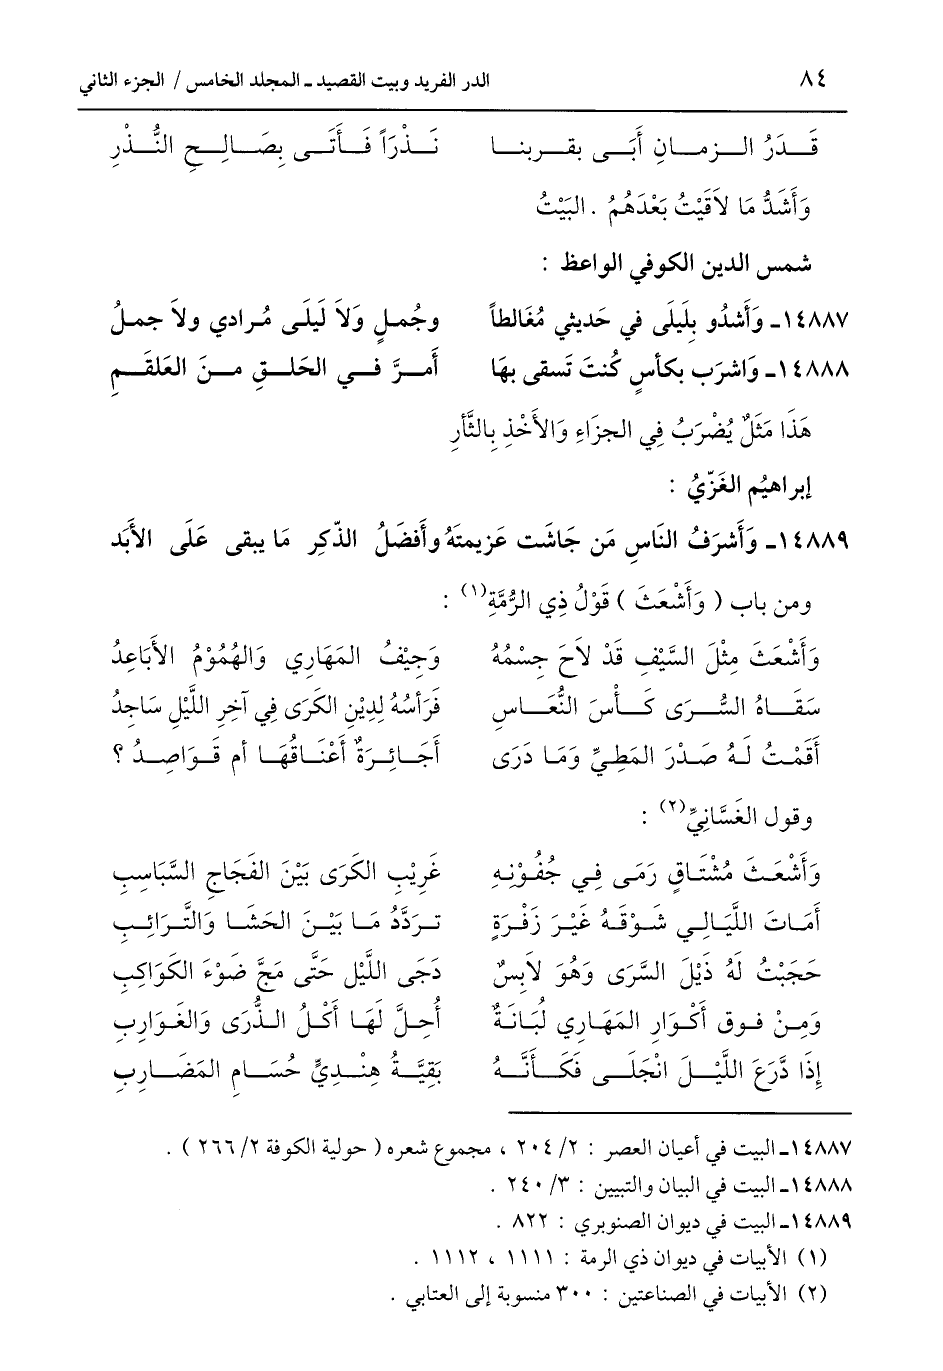 ٨٤ الدر الفريد وبيت القصيد ـ المجلد الخامس / الجزء الثاني
قَدَرُ الزمانِ أَبَى بقربنا نَذْرَاً فَأَتَى بِصَالِحِ النُّذْرِ
وَأَشَدُّ مَا لاَقَيْتُ بَعْدَهُمُ . البَيْتُ
شمس الدين الكوفي الواعظ :
١٤٨٨٧ـ وَأَشدُو بِلَيلَى في حَديثي مُغَالطاً وجُملٍ وَلاَ لَيلَى مُرادي ولاَ جملُ
١٤٨٨٨ـ وَاشرَب بكأسٍ كُنتَ تَسقى بهَا أَمرَّ في الحَلقِ منَ العَلقَمِ
هَذَا مَثَلٌ يُضْرَبُ فِي الجزَاءِ وَالأَخْذِ بِالثَّأرِ
إبراهيْم الغَزّيُ :
١٤٨٨٩ـ وَأَشرَفُ النَاسِ مَن جَاشَت عَزيمتَهُ وأَفضَلُ الذّكرِ مَا يبقى عَلَى الأبَد
ومن باب ( وَأَشْعَثَ ) قَوْلُ ذِي الرُّمَّةِ(١) :
وَأَشْعَثَ مِثْلَ السَّيْفِ قَدْ لاَحَ جِسْمُهُ وَجِيْفُ المَهَارِي وَالهُمُوْمُ الأَبَاعِدُ
سَقَاهُ السُّرَى كَأْسَ النُّعَاسِ فَرَأسُهُ لِدِيْنِ الكَرَى فِي آخِرِ اللَّيْلِ سَاجِدُ
أَقَمْتُ لَهُ صَدْرَ المَطِيِّ وَمَا دَرَى أَجَائِرَةٌ أَعْنَاقُهَا أم قَوَاصِدُ ؟
وقول الغَسَّانِيِّ(٢) :
وَأَشْعَثَ مُشْتَاقٍ رَمَى فِي جُفُوْنِهِ غَرِيْبِ الكَرَى بَيْنَ الفجَاجِ السَّبَاسِبِ
أَمَاتَ اللَّيَالِي شَوْقَهُ غَيْرَ زَفْرَةٍ تردَّدُ مَا بَيْنَ الحَشَا وَالتَّرَائِبِ
حَجَبْتُ لَهُ ذَيْلَ السَّرَى وَهُوَ لاَبِسٌ دَجَى اللَّيْلِ حَتَّى مَجَّ ضَوْءَ الكَوَاكِبِ
وَمِنْ فوق أَكْوَارِ المَهَارِي لُبَانَةٌ أُحِلَّ لَهَا أَكْلُ الذُّرَى وَالغَوَارِبِ
إِذَا دَّرَعَ اللَّيْلَ انْجَلَى فَكَأَنَّهُ بَقِيَّةُ هِنْدِيٍّ حُسَامِ المَضَارِبِ
١٤٨٨٧ـ البيت في أعيان العصر : ٢/ ٢٠٤ ، مجموع شعره ( حولية الكوفة ٢/ ٢٦٦ ) .
١٤٨٨٨ـ البيت في البيان والتبيين : ٣/ ٢٤٠ .
١٤٨٨٩ـ البيت في ديوان الصنوبري : ٨٢٢ .
(١) الأبيات في ديوان ذي الرمة : ١١١١ ، ١١١٢ .
(٢) الأبيات في الصناعتين : ٣٠٠ منسوبة إلى العتابي .